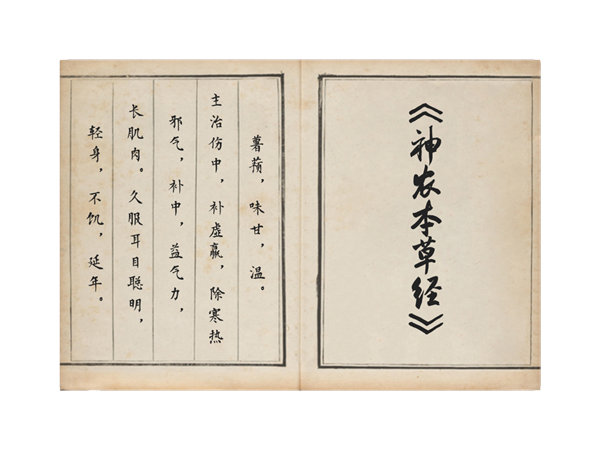 《神农本草经》
薯蓣，味甘，温。
主治伤中，补虚羸，除寒热
邪气，补中，益气力，
长肌肉。久服耳目聪明，
轻身，不饥，延年。